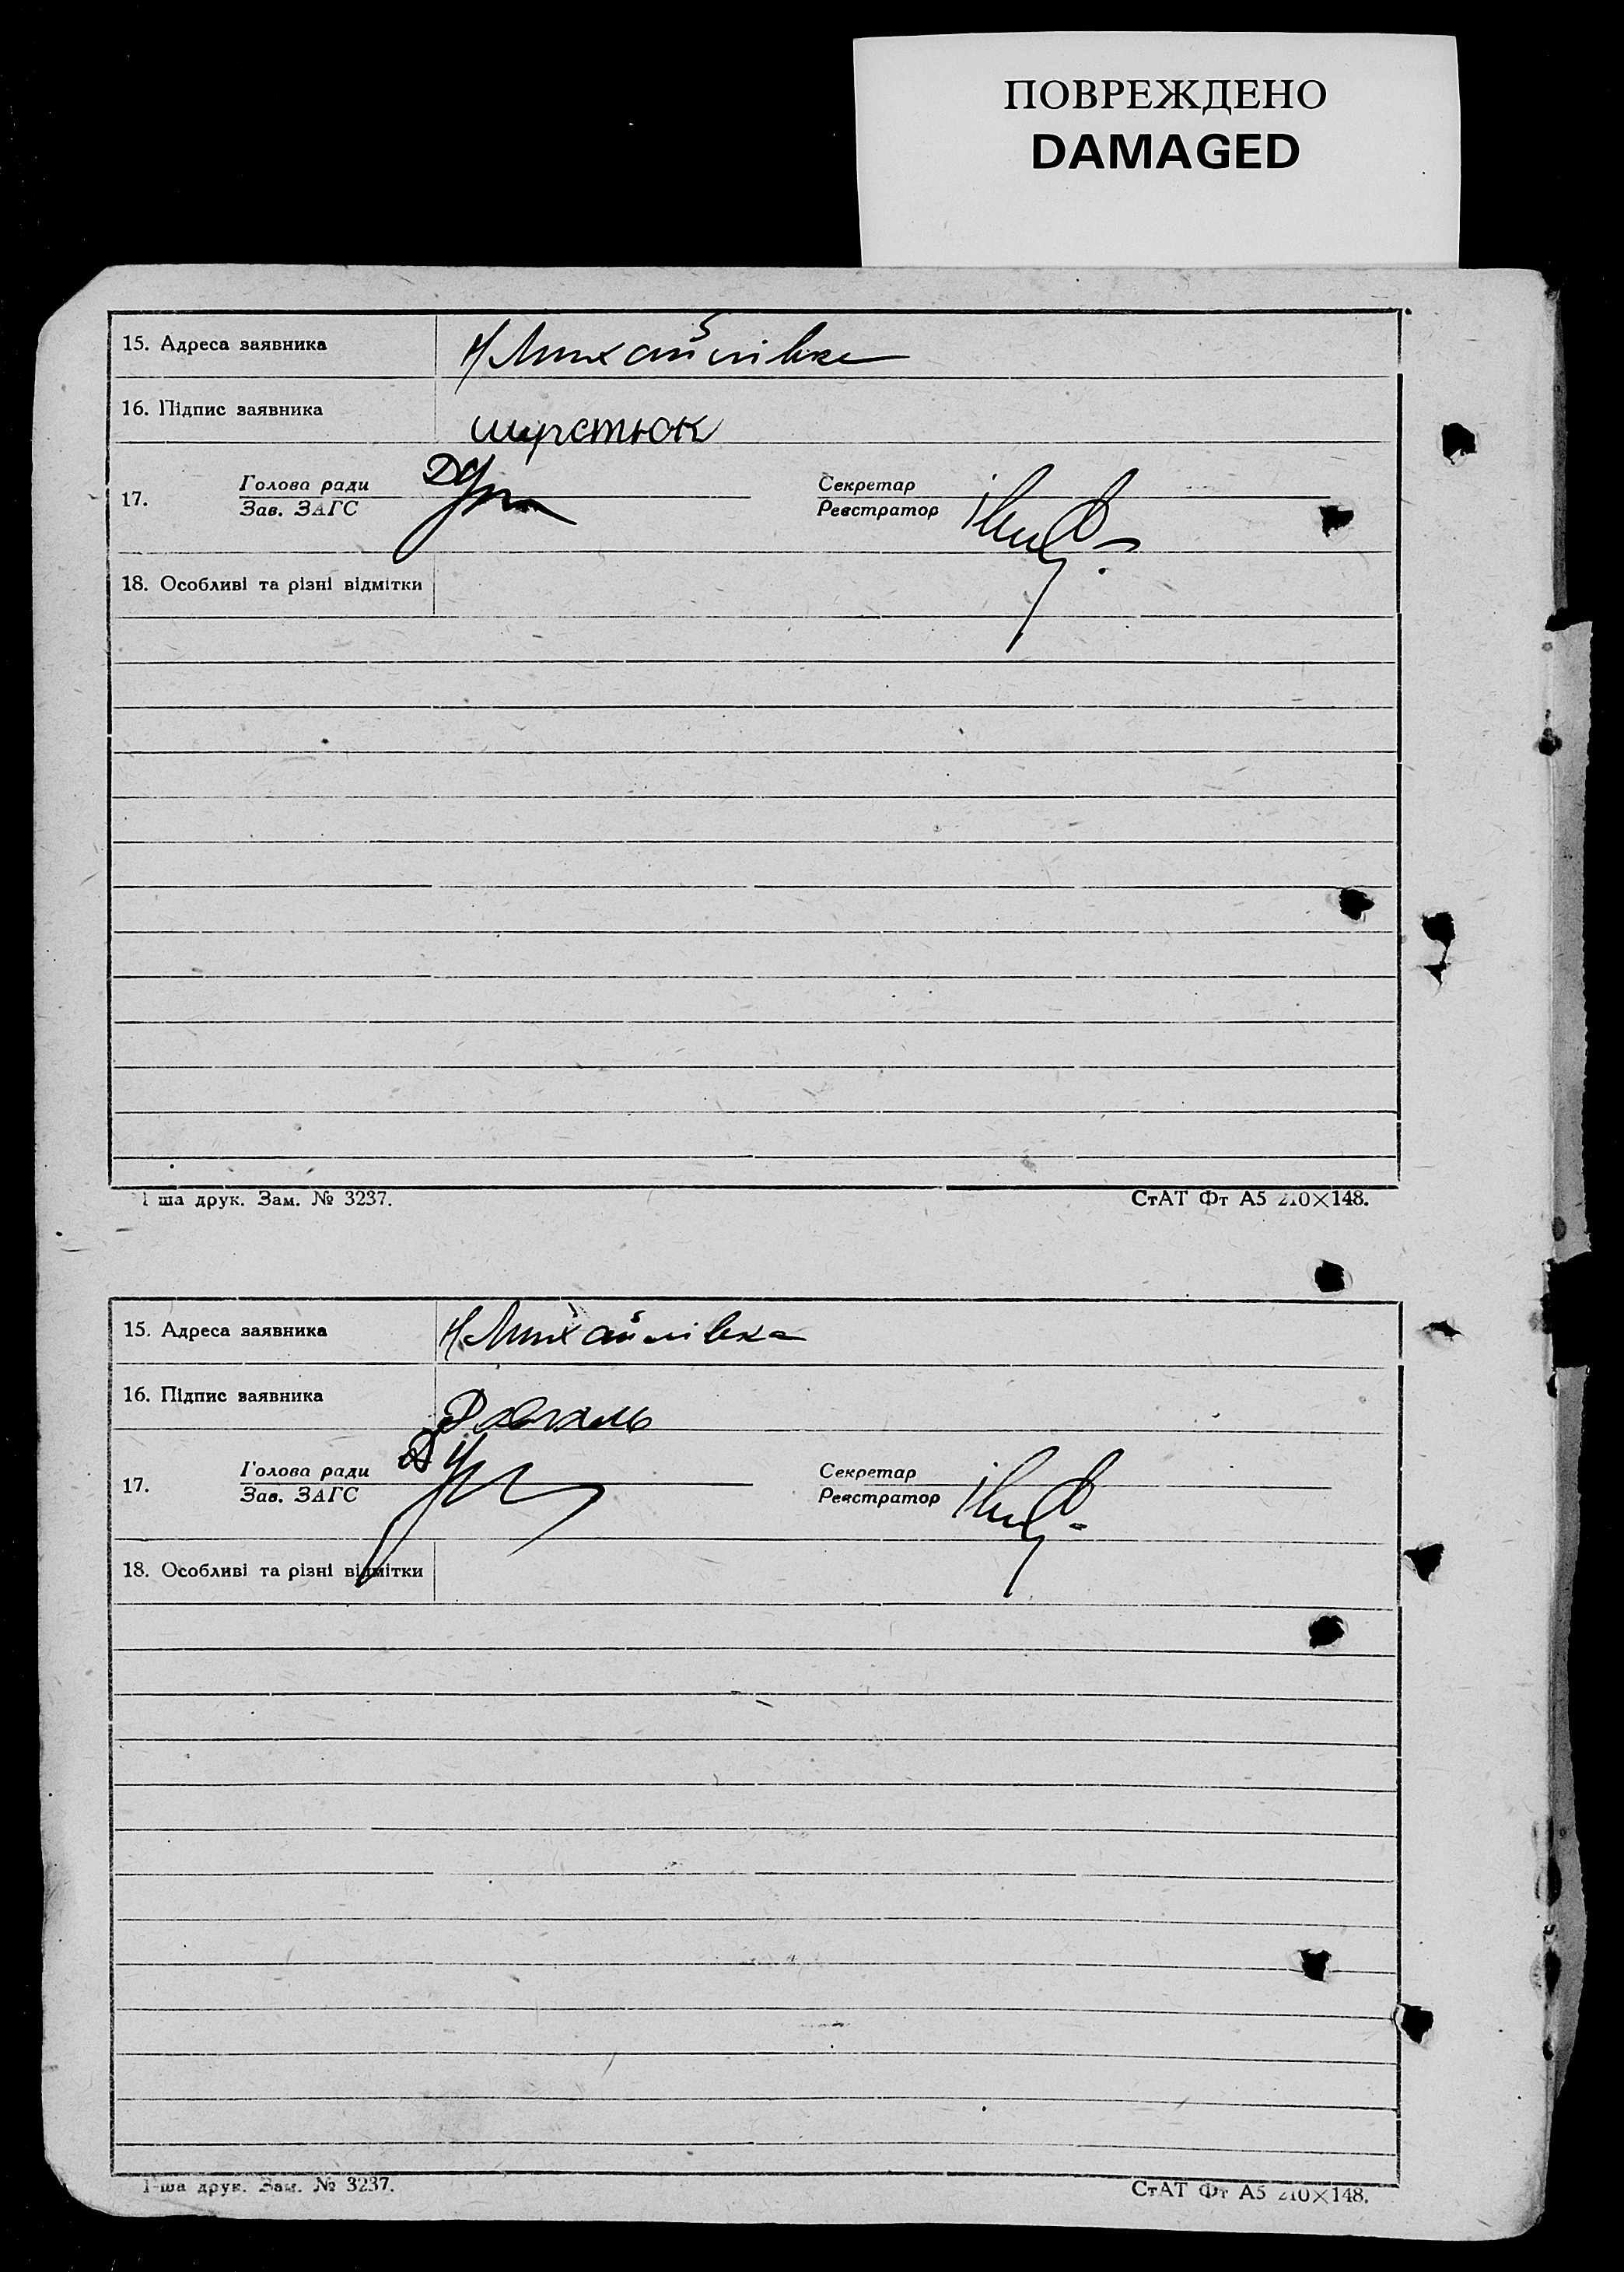 ПОВРЕЖДЕНО
DAMAGED
15. Адреса заявника Н Михайлівка
16. Підпис заявника
17. Голова ради Секретар
Зав. ЗАГС Реєстратор
18. Особливі та різні відмітки
1 ша друк. Зам. № 3237. СтАТ Фт А5 210×148.
15. Адреса заявника Н Михайлівка
16. Підпис заявника
17. Голова ради Секретар
Зав. ЗАГС Реєстратор
18. Особливі та різні відмітки
1-ша друк. Зам. № 3237. СтАТ Фт А5 210×148.